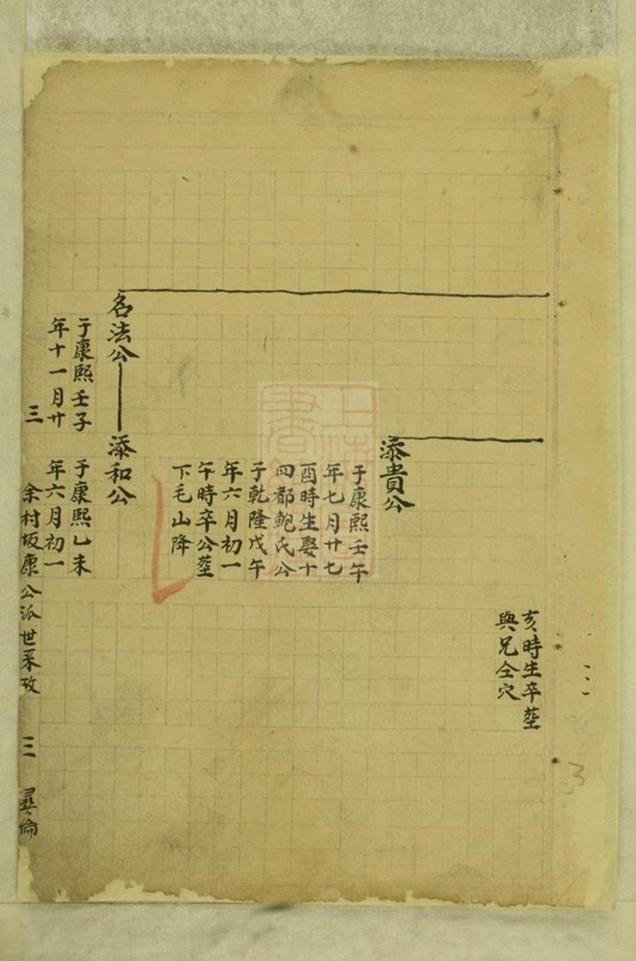 亥時生卒塟
與兄仝穴
添貴公
于康熙壬午
年七月廿七
酉時生娶十
四都鮑氏公
于乾隆戊午
年六月初一
午時卒公塟
下毛山降
名法公
添和公
于康熙壬子
年十一月廿
于康熙乙未
年六月初一
三
余村坂康公派世系攷
三
彝倫
3